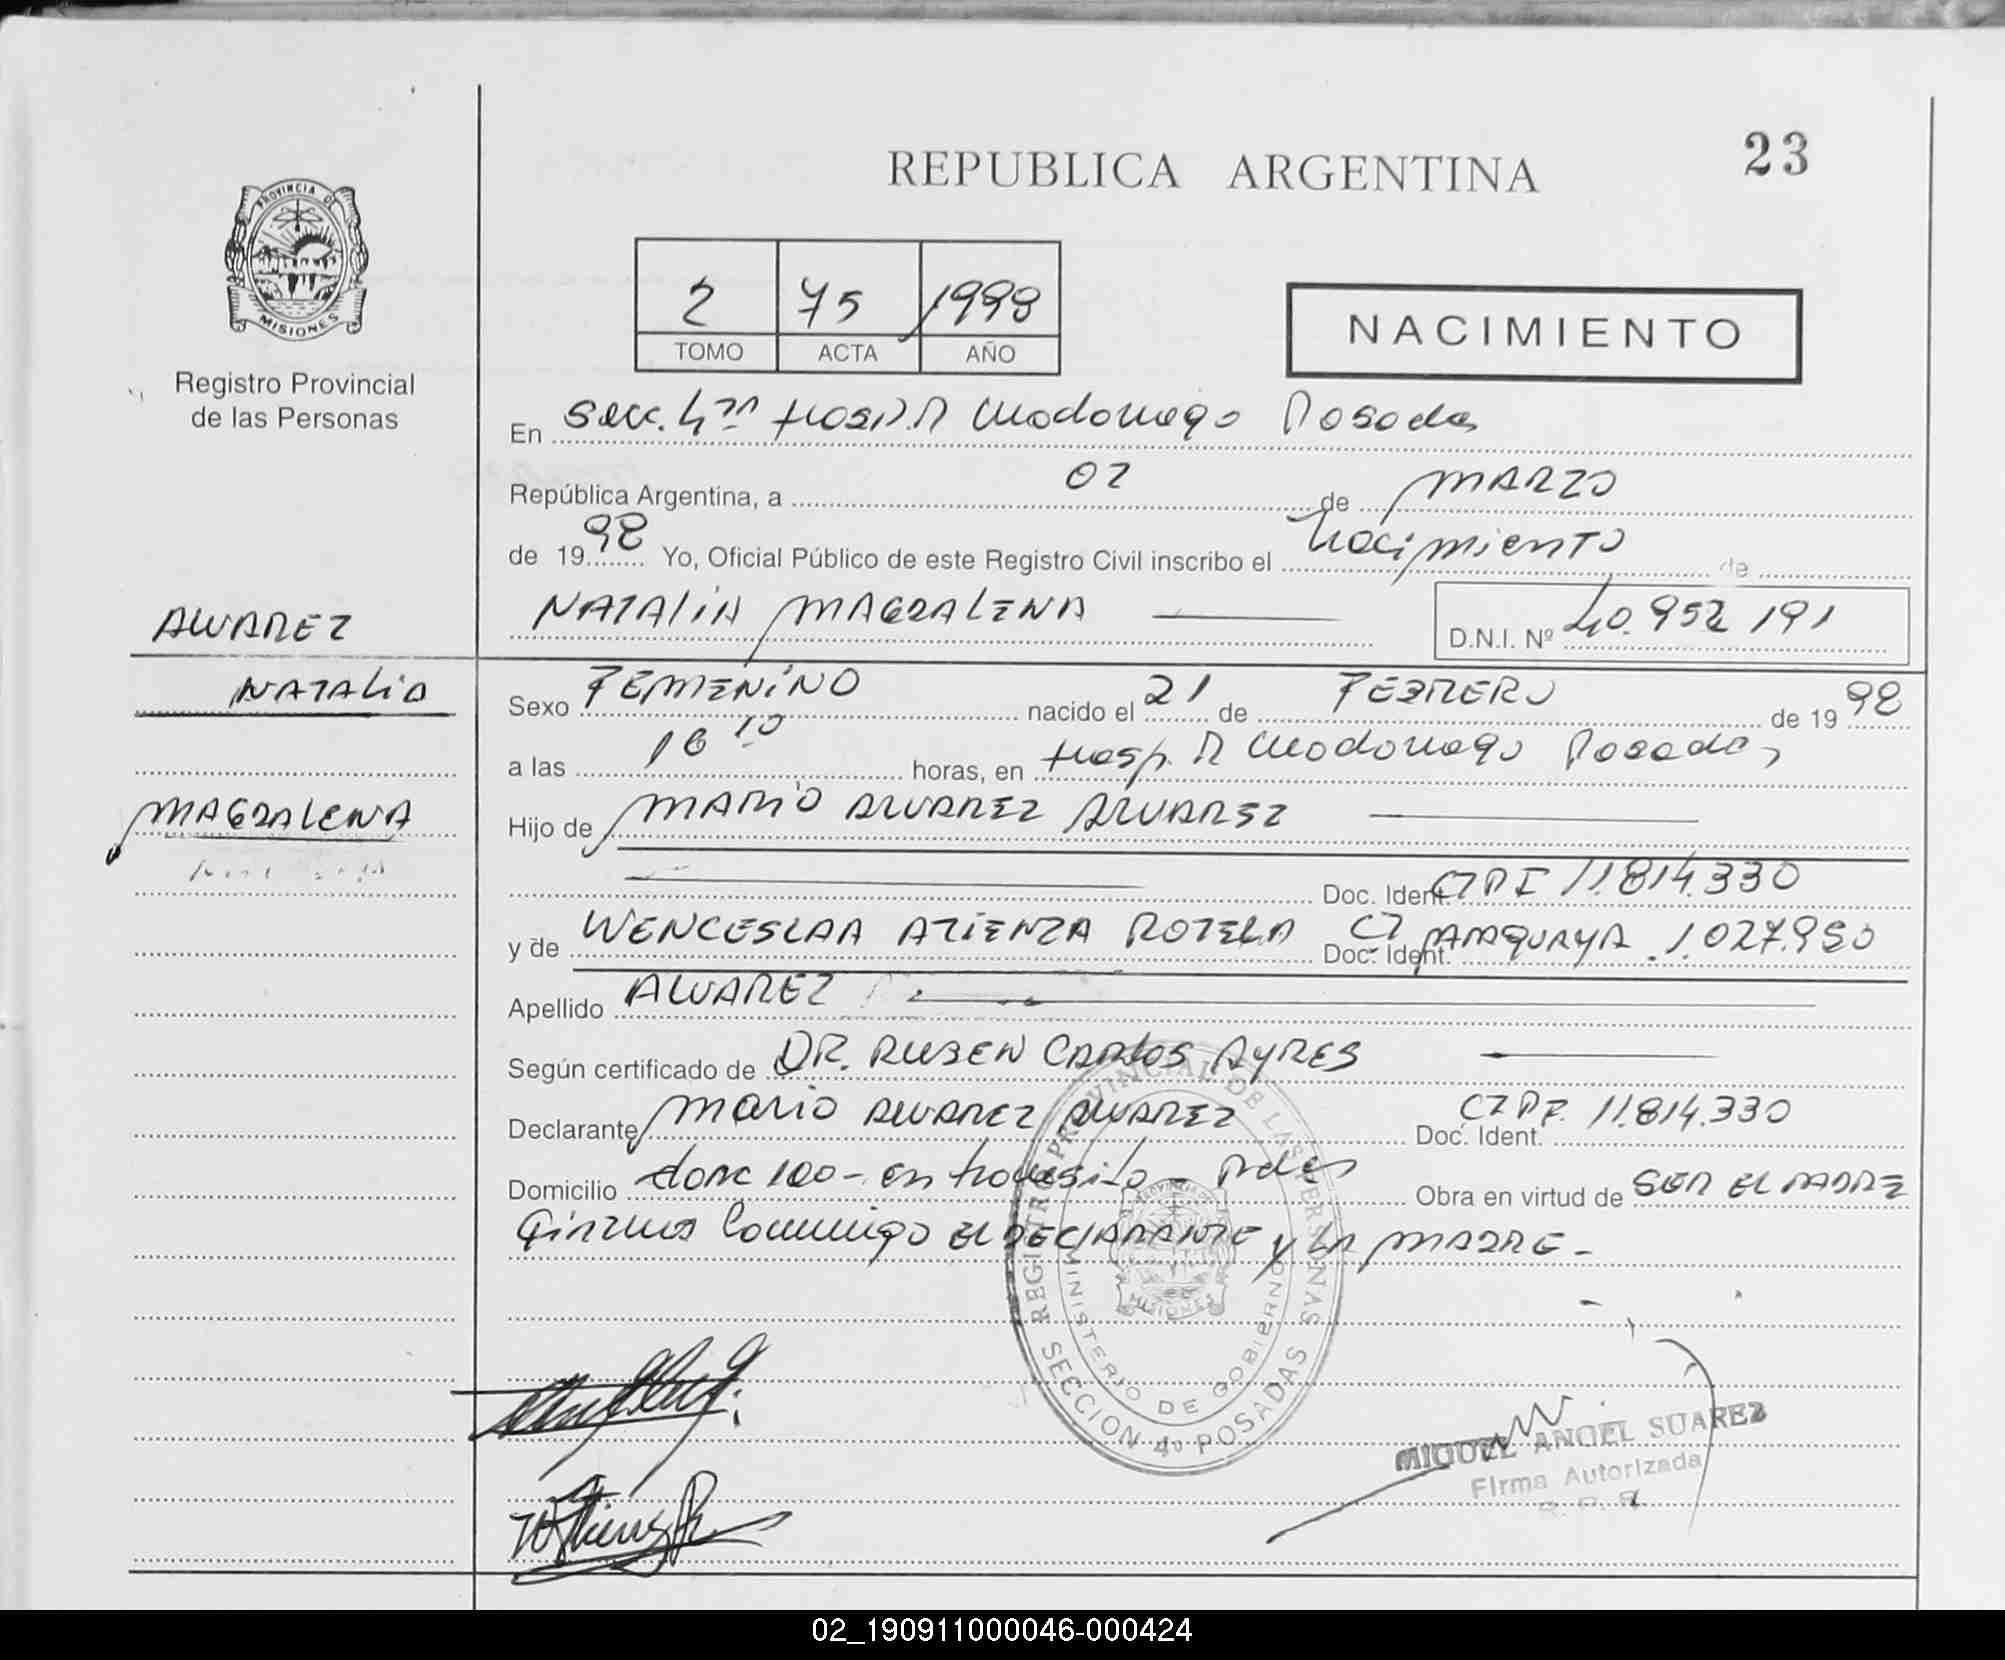 REPUBLICA ARGENTINA
23
PROVINCIA DE
MISIONES
Registro Provincial
de las Personas
2 75 1998
TOMO ACTA AÑO
NACIMIENTO
En Secc. 4ta Hosp. R Madariaga Posadas
República Argentina, a 02 de MARZO
de 1998 Yo, Oficial Público de este Registro Civil inscribo el Nacimiento de
NATALIA MAGDALENA D.N.I. Nº 40.952 191
ALVAREZ
NATALIA
MAGDALENA
Sexo FEMENINO nacido el 21 de FEBRERO de 1998
a las 16 10 horas, en Hosp. R Madariaga Posadas
Hijo de MARIO ALVAREZ ALVAREZ
Doc. Ident. 11.814.330
y de WENCESLAA ATIENZA ROTELA Doc. Ident. CI PARAGUAYA 1.027.950
Apellido ALVAREZ
Según certificado de DR. RUBEN CARLOS AYRES
Declarante MARIO ALVAREZ ALVAREZ Doc. Ident. 11.814.330
Domicilio 100 - en transito - Pdas Obra en virtud de SER EL PADRE
Firman Conmigo EL DECLARANTE y LA MADRE -
REGISTRO PROVINCIAL DE LAS PERSONAS
MINISTERIO DE GOBIERNO
PROVINCIA DE
MISIONES
SECCION 4a POSADAS
MIGUEL ANGEL SUAREZ
Firma Autorizada
02_190911000046-000424